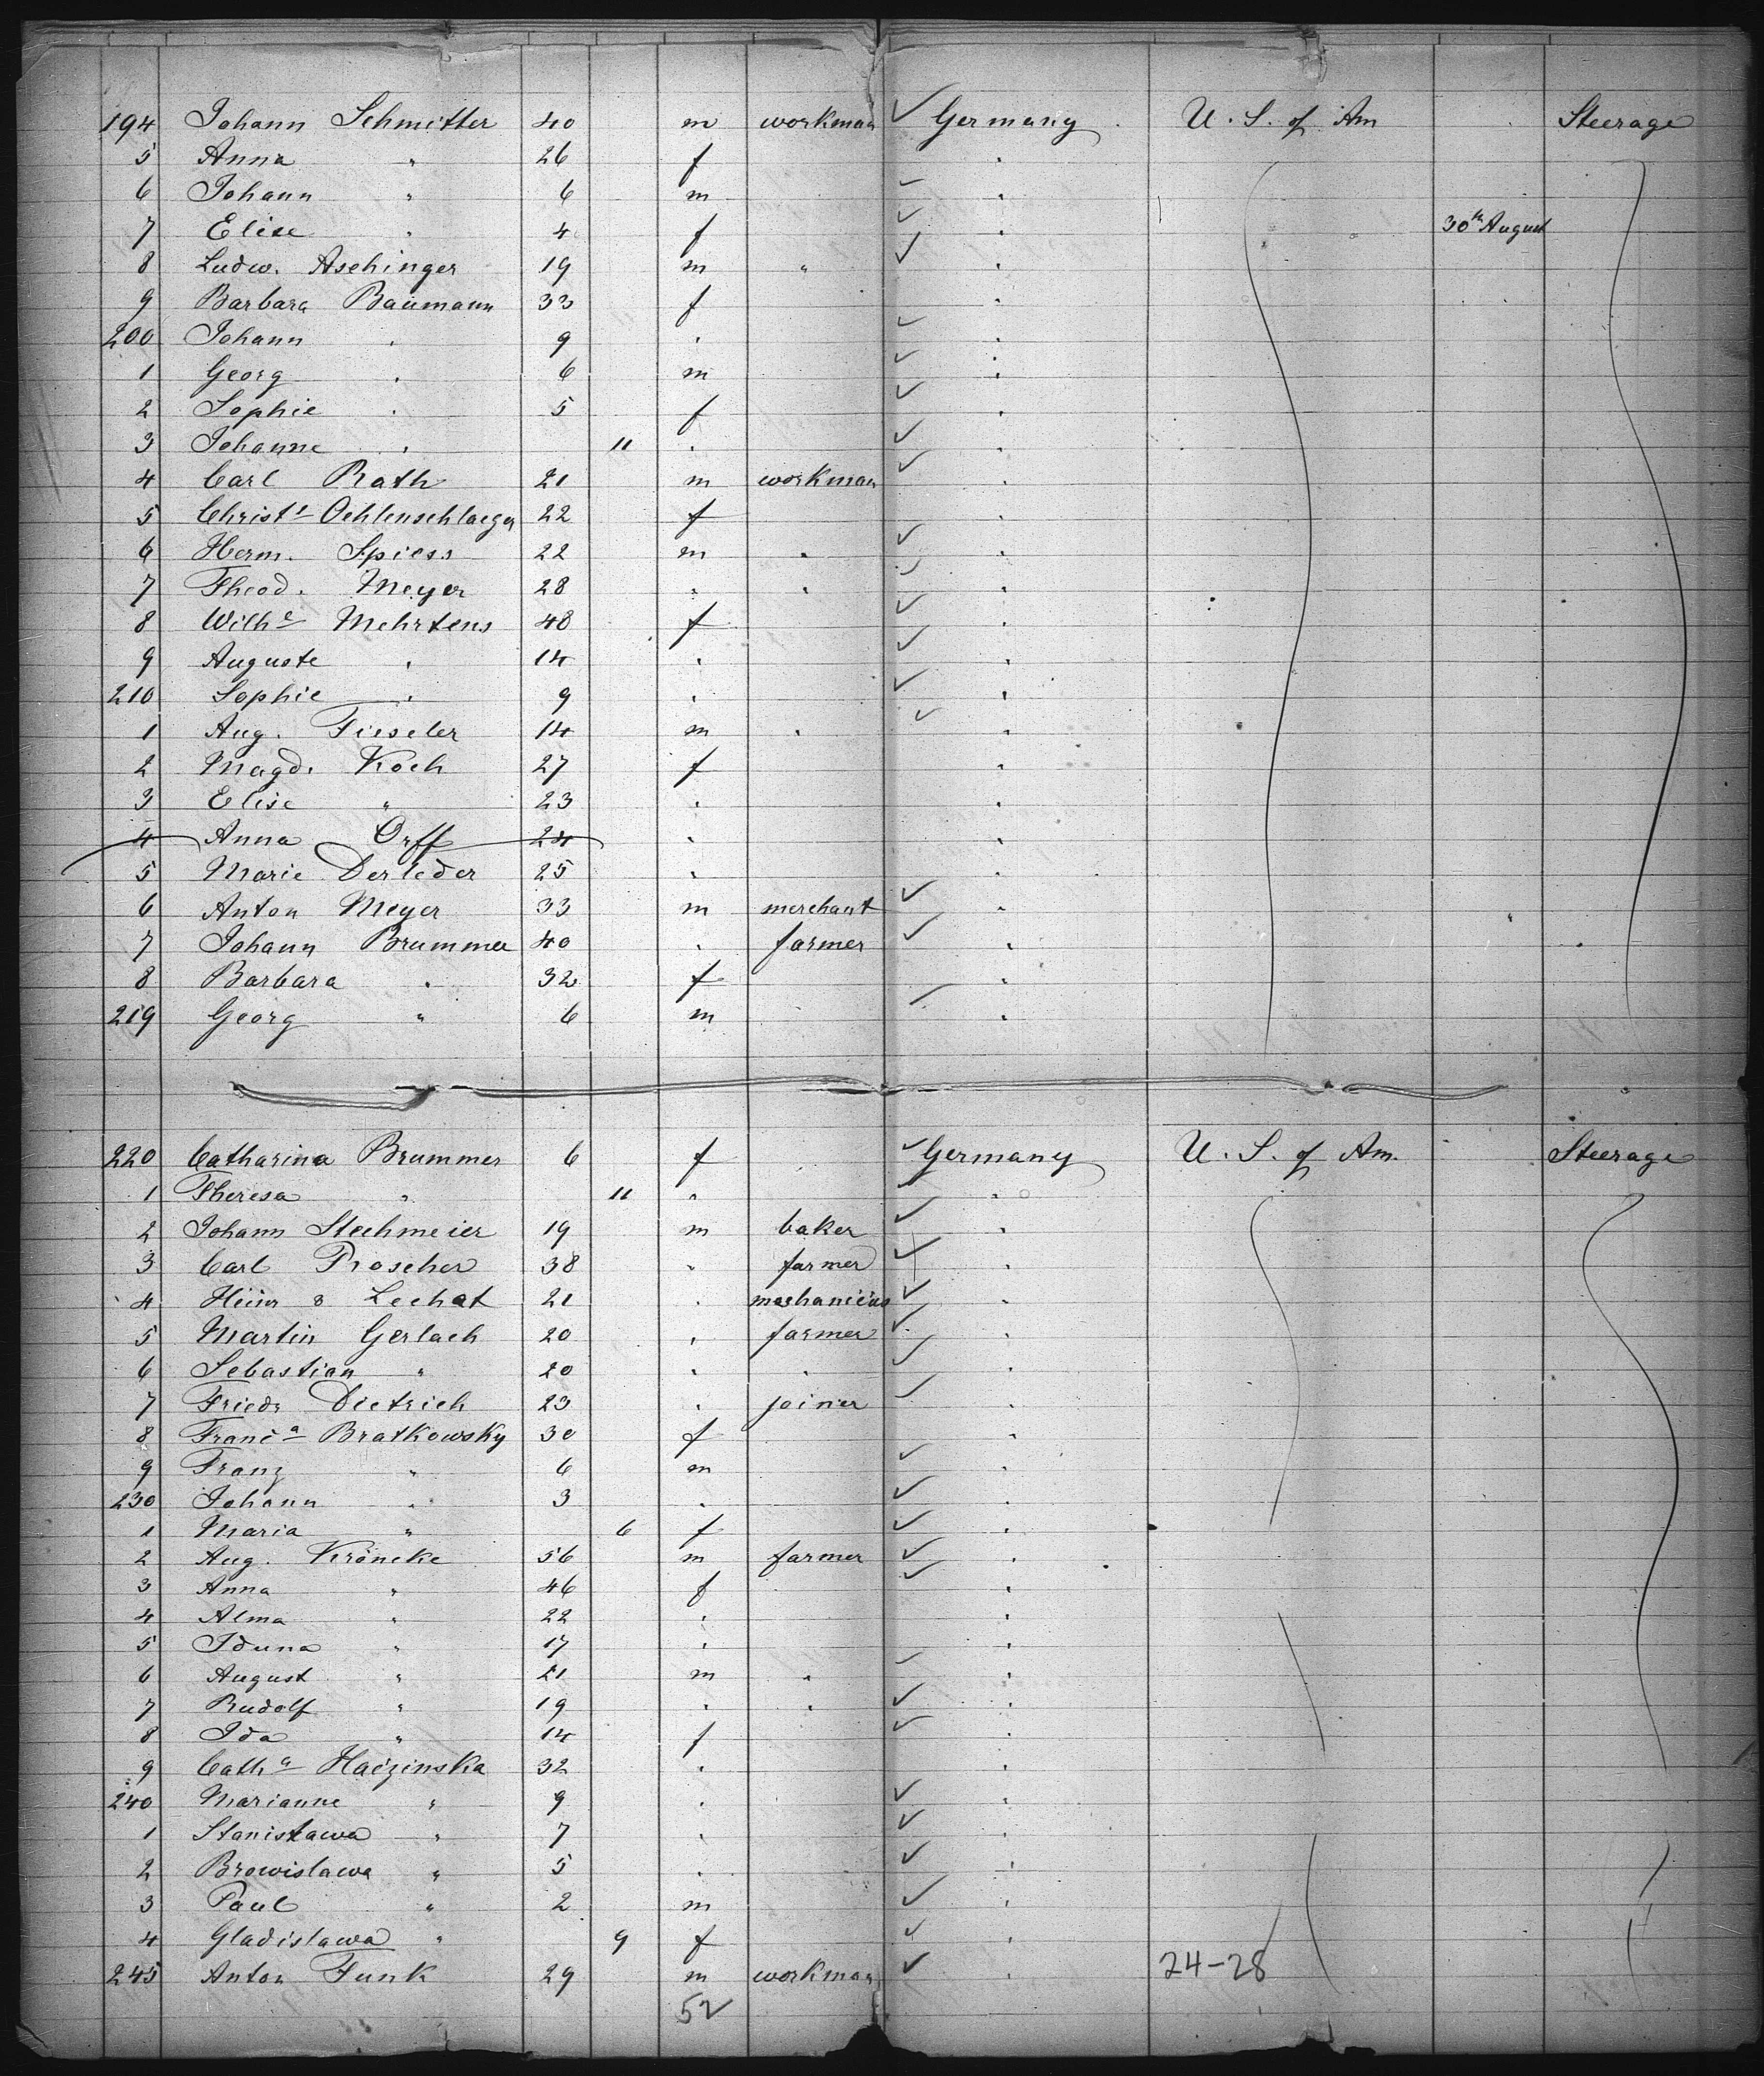 194 Johann Schmitter 40 m workman ✓ Germany U. S. of Am Steerage
5 Anna " 26 f "
6 Johann " 6 m ✓ "
7 Elise " 4 f ✓ " 30th August
8 Ludw. Aschinger 19 m " ✓ "
9 Barbara Baumann 33 f "
200 Johann " 9 " ✓ "
1 Georg " 6 m ✓ "
2 Sophie " 5 f ✓ "
3 Johanne " 11 " ✓ "
4 Carl Rath 21 m workman ✓ "
5 Christe Oehlenschlaeger 22 f "
6 Herm. Spiess 22 m " ✓ "
7 Theod. Meyer 28 " " ✓ "
8 Wilhe Mehrtens 48 f ✓ "
9 Auguste " 14 " ✓ "
210 Sophie " 9 " ✓ "
1 Aug. Fieseler 14 m " ✓ "
2 Magd. Koch 27 f "
3 Elise " 23 " "
4 Anna Orff 24 " "
5 Marie Derleder 25 " "
6 Anton Meyer 33 m merchant ✓ "
7 Johann Brummer 40 " farmer ✓ "
8 Barbara " 32 f "
219 Georg " 6 m ✓ "
220 Catharina Brummer 6 f ✓ Germany U. S. of Am. Steerage
1 Theresa " 11 " ✓ "
2 Johann Stechmeier 19 m baker ✓ "
3 Carl Proscher 38 " farmer ✓ "
4 Lechat 21 " mechanicus ✓ "
5 Martin Gerlach 20 " farmer ✓ "
6 Sebastian " 20 " " ✓ "
7 Friedr Dietrich 23 " joiner ✓ "
8 Franca Bratkowsky 30 f "
9 Franz " 6 m ✓ "
230 Johann " 3 " ✓ "
1 Maria " 6 f ✓ "
2 Aug. Kröncke 56 m farmer ✓ "
3 Anna " 46 f ✓ "
4 Alma " 22 " "
5 Iduna " 17 " "
6 August " 21 m " ✓ "
7 Rudolf " 19 " " ✓ "
8 Ida " 14 f ✓ "
9 Catha Haizinska 32 " "
240 Marianne " 9 " ✓ "
1 Stanistawa " 7 " ✓ "
2 Browislawa " 5 " ✓ "
3 Paul " 2 m ✓ "
4 Gladislawa " 9 f ✓ "
245 Anton Funk 29 m workman ✓ " 24-28
52